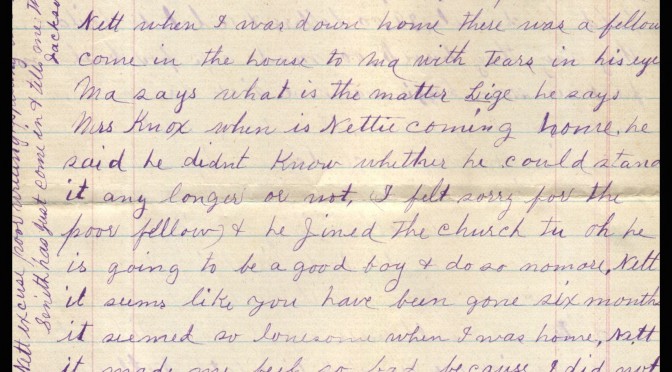 Nett when I was down home there was a fellow
come in the house to Ma with Tears in his eye
Ma says what is the matter Lige he says
Mrs Knox when is Nettie coming home, he
said he didnt Know whether he could stand
it any longer or not, (I felt sorry for the
poor fellow) & he Joined the church tu oh he
is going to be a good boy & do so nomore, Nett
it seems like you have been gone six month
it seemed so lonesome when I was home, Nett
it made me feel so bad because I did not
Nett excuse poor writing
has just come in & tells me th
Jackso